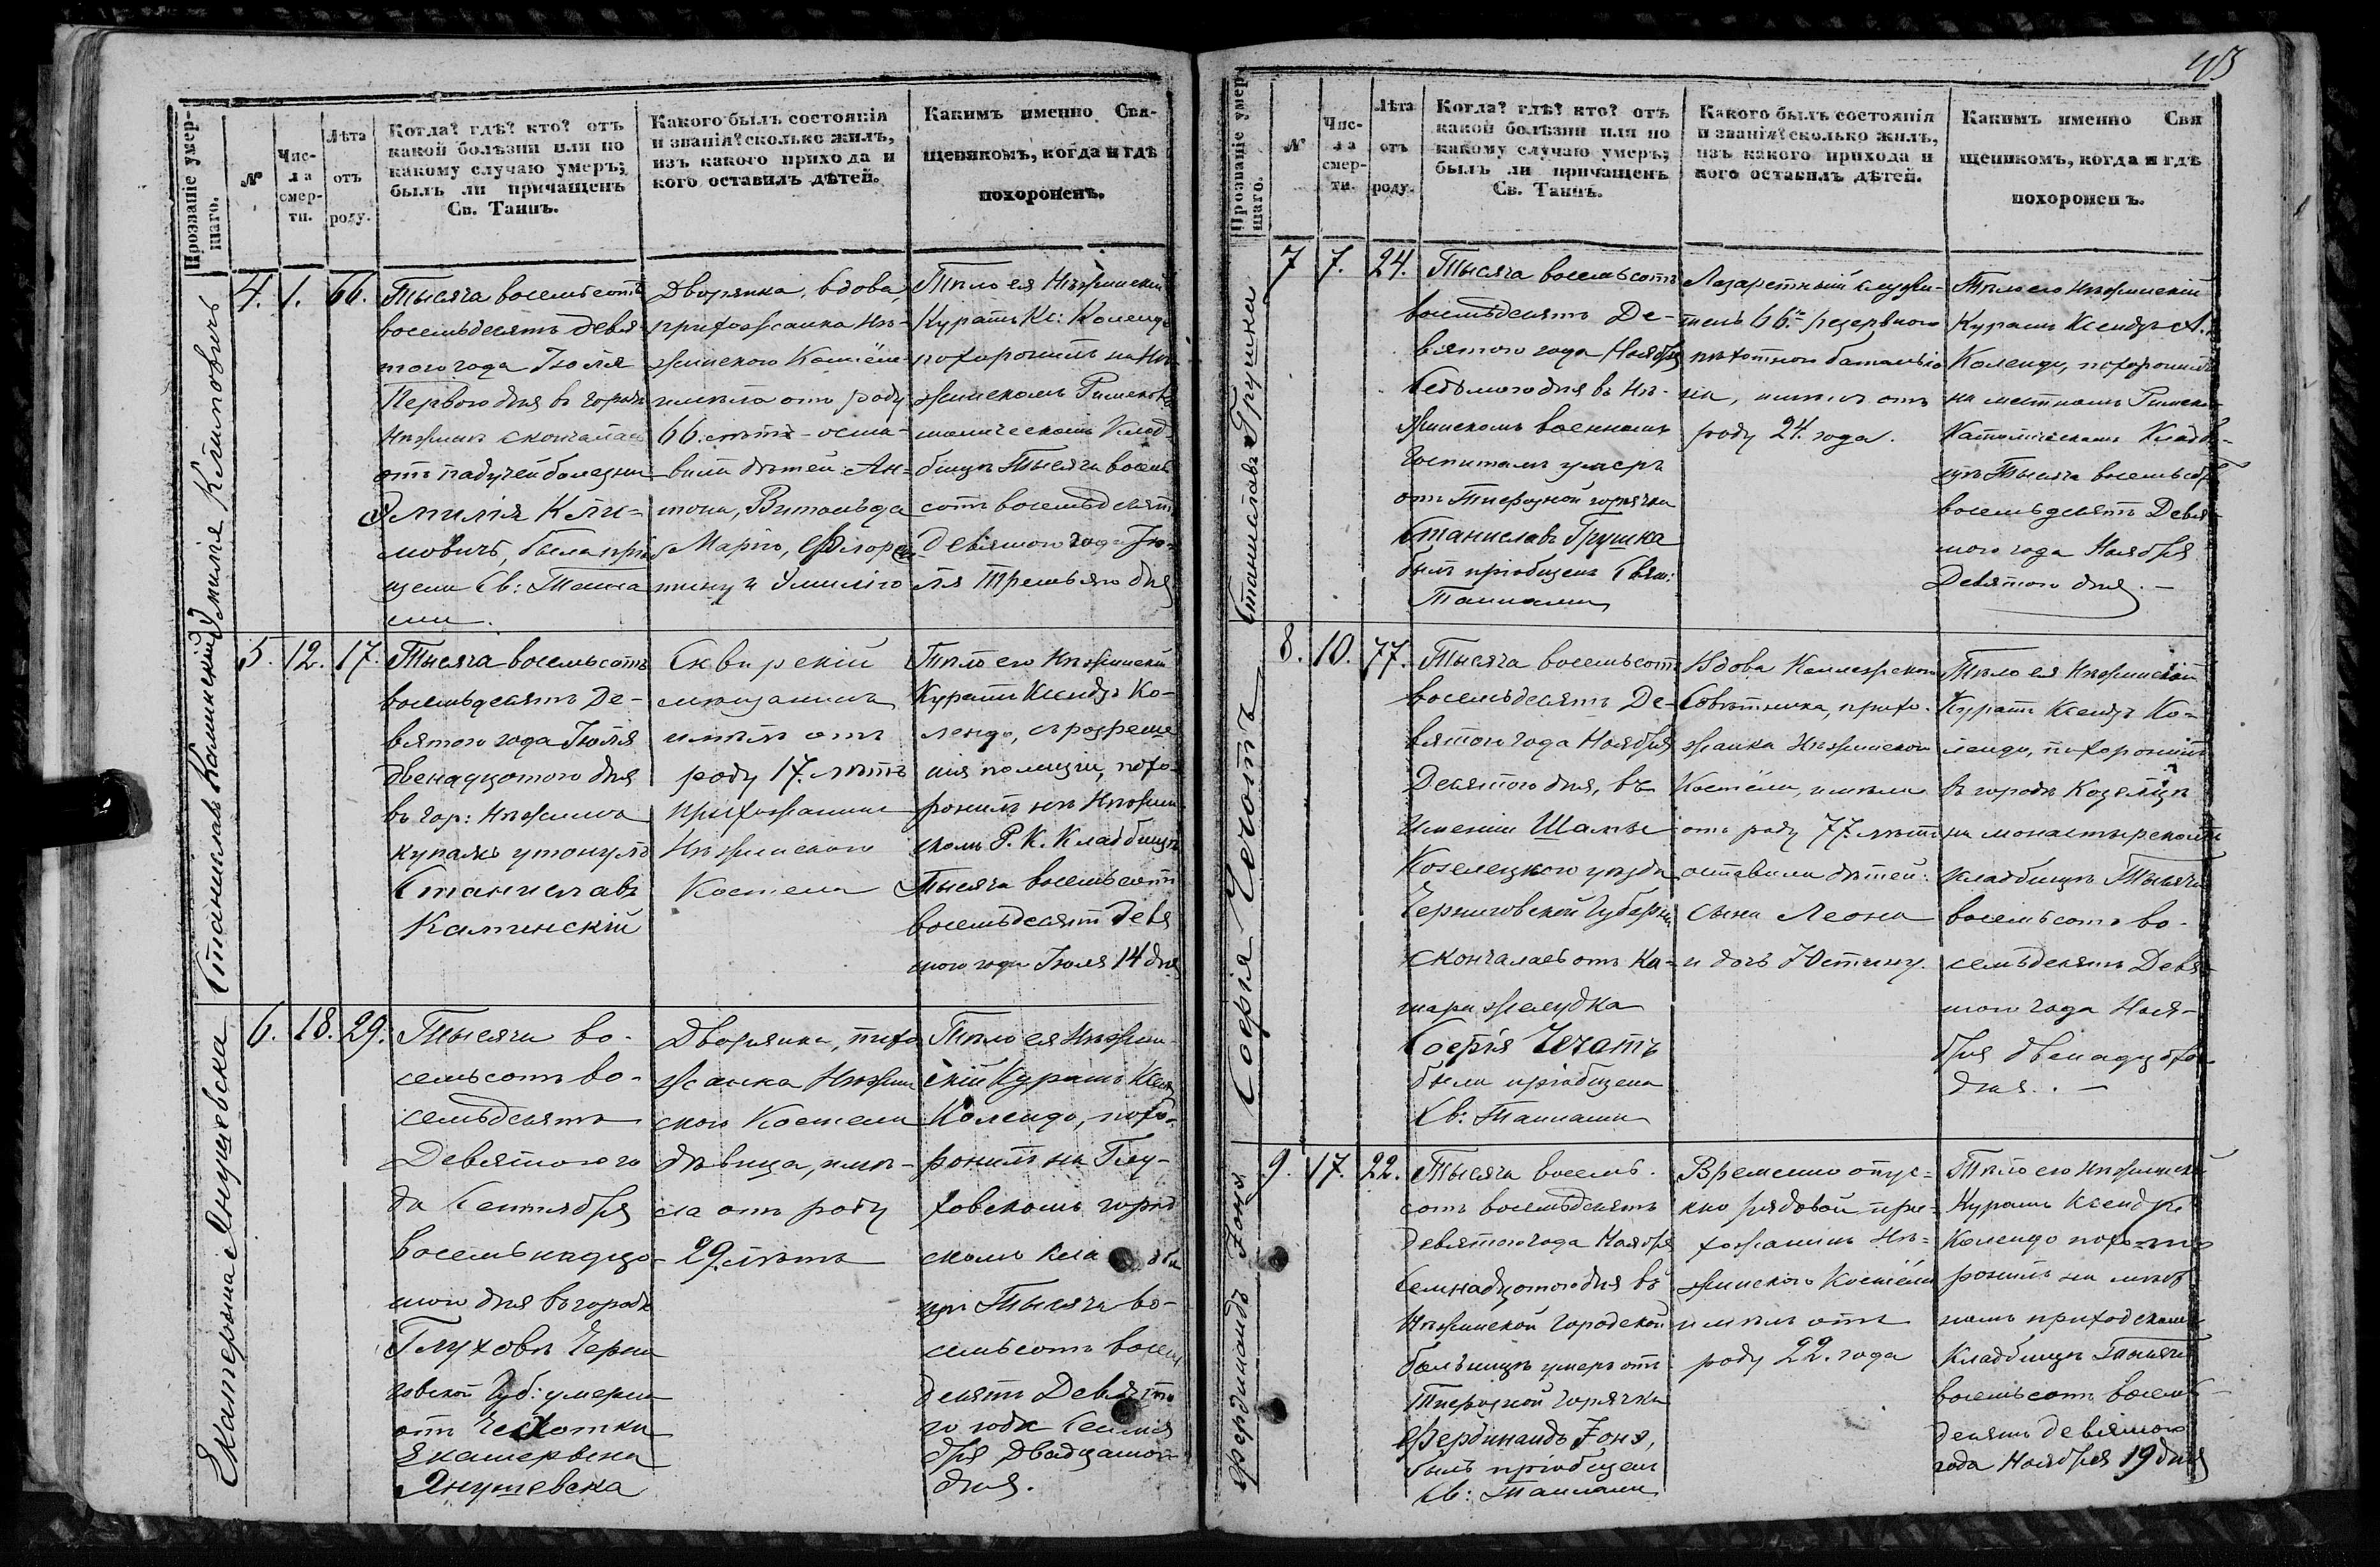 43
Прозваніе умер-
шаго.
№
Чис-
ла
смер-
ти.
Лѣта
отъ
роду.
Когда? гдѣ? кто? отъ
какой болѣзни или по
какому случаю умеръ;
былъ ли причащенъ
Св. Таинъ.
Какого былъ состоянія
и званія? сколько жилъ,
изъ какого прихода и
кого оставилъ дѣтей.
Какимъ именно Свя-
щенникомъ, когда и гдѣ
похороненъ.
Эмилія Климовичъ
4.
1.
66.
Тысяча восемьсотъ
восемьдесятъ девя-
того года Іюля
Перваго дня въ городѣ
Нѣжинѣ скончалась
отъ падучей болезни
Эмилія Кли-
мовичъ, была прі
щена Св: Таина
ми.
Дворянка, вдова,
прихожанка Нѣ-
жинского Костёла
имѣла отъ роду
66. лѣтъ - оста-
вила дѣтей: Ан-
тона, Витольда
Марію, Флорен
тину и Эмилію
Тѣло ея Нѣжинскій
Куратъ Кс: Колендо
похоронилъ на Нѣ-
жинскомъ Римскока
толическомъ Клад-
бищѣ Тысяча восемь
сотъ восемьдесятъ
Девятого года Ію-
ля Третьяго дня
Станиславъ Калинскій
5.
12.
17.
Тысяча восемьсотъ
восемьдесятъ Де-
вятого года Іюля
двенадцатого дня
въ гор: Нѣжинѣ
купаясь утонулъ
Станиславъ
Калинскій
Сквирскій
мѣщанинъ
имѣлъ отъ
роду 17. лѣтъ
Прихожанинъ
Нѣжинского
Костела
Тѣло его Нѣжинскій
Куратъ Ксендзъ Ко-
лендо, съ розреше
нія полиціи, похо-
ронилъ на Нѣжин
скомъ Р. К. Кладбищѣ
Тысяча восемьсотъ
восемьдесят Девя
того года Іюля 14 дня
Екатерина Янушевска
6.
18.
29.
Тысяча во-
семьсотъ во-
семьдесятъ
Девятого го
да Сентября
восемьнадца-
того дня въ городѣ
Глуховѣ Черни
говской Губ: умерла
отъ Чехотки
Екатерина
Янушевска
Дворянка, прихо
жанка Нѣжин
ского Костела
дѣвица, имѣ-
ла отъ роду
29. лѣтъ
Тѣло ея Нѣжин
скій Куратъ Ксен
Колендо, похо-
ронилъ на Глу-
ховскомъ город
скомъ кла
щѣ Тысяча во-
семьсотъ восем
десятъ Девято
го года Сентя
бря Двадцатого
дня.
Прозваніе умер
шаго.
№
Чис-
ла
смер-
ти.
Лѣта
отъ
роду.
Когда? гдѣ? кто? отъ
какой болѣзни или по
какому случаю умеръ;
былъ ли причащенъ
Св. Таинъ.
Какого былъ состоянія
и званія? сколько жилъ,
изъ какого прихода и
кого оставилъ дѣтей.
Какимъ именно Свя
щенникомъ, когда и гдѣ
похороненъ.
Станиславъ Грушка
7
7.
24.
Тысяча восемьсотъ
восемьдесятъ Де-
вятого года Ноября
Седьмого дня въ Нѣ-
жинскомъ военномъ
госпиталѣ умеръ
отъ Тифозной горячки
Станиславъ Грушка
былъ пріобщенъ Свят:
Таинами
Лазаретный служи-
тель 66.го резервного
пѣхотного баталіо
на, имѣлъ отъ
роду 24. года.
Тѣло его Нѣжинскій
Куратъ Ксендзъ А.
Колендо, похоронилъ
на местномъ Римско-
Католическомъ Кладби-
щѣ Тысяча восемьсотъ
восемьдесятъ Девя-
того года Ноября
Девятого дня. —
Софія Чечотъ
8.
10.
77.
Тысяча восемьсотъ
восемьдесятъ Де-
вятого года Ноября
Десятого дня, въ
Имении Шамы
Козелецкого уѣзда
Черниговской Губерніи
скончалась отъ Ка-
тара желудка
Софія Чечотъ
была пріобщена
Св: Таинами
Вдова Коллежского
Совѣтника, прихо-
жанка Нѣжинского
Костёла, имѣла
отъ роду 77. лѣтъ
оставила дѣтей:
сына Леона
и дочъ Юстину.
Тѣло ея Нѣжинскій
Куратъ Ксендзъ Ко-
лендо, похоронилъ
въ городѣ Козельцѣ
на монастырскомъ
кладбищѣ Тысяча
восемьсотъ во-
семьдесятъ Девя-
того года Ноя-
бря двенадцатого
дня. —
Фердинандъ Зоня
9.
17.
22.
Тысяча восемь-
сотъ восемьдесятъ
девятого года Ноября
Семнадцатого дня въ
Нѣжинской Городской
больницѣ умеръ отъ
Тифозной горячки
Фердинандъ Зоня,
былъ пріобщенъ
Св: Таинами
Временно отпус-
кно рядовой при-
хожанинъ Нѣ-
жинского Костёла
имѣлъ отъ
роду 22. года
Тѣло его Нѣжинскій
Куратъ Ксендзъ
Колендо похо-
ронилъ на мѣст
номъ приходскомъ
Кладбищѣ Тысяча
восемьсотъ восемь-
десятъ девятого
года Ноября 19 дня